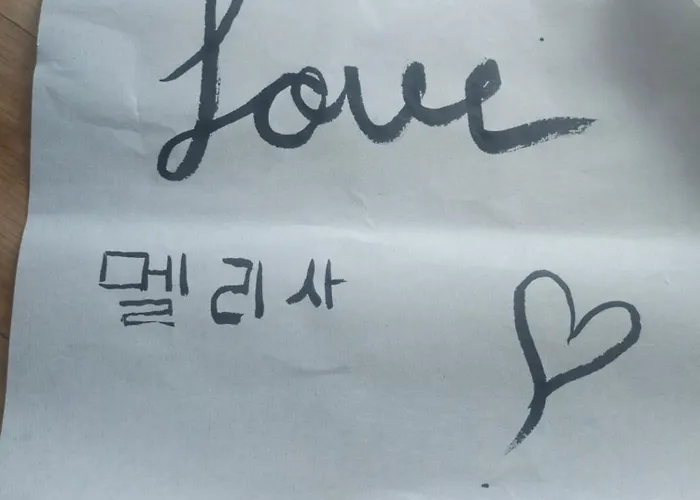 Love
멜리사